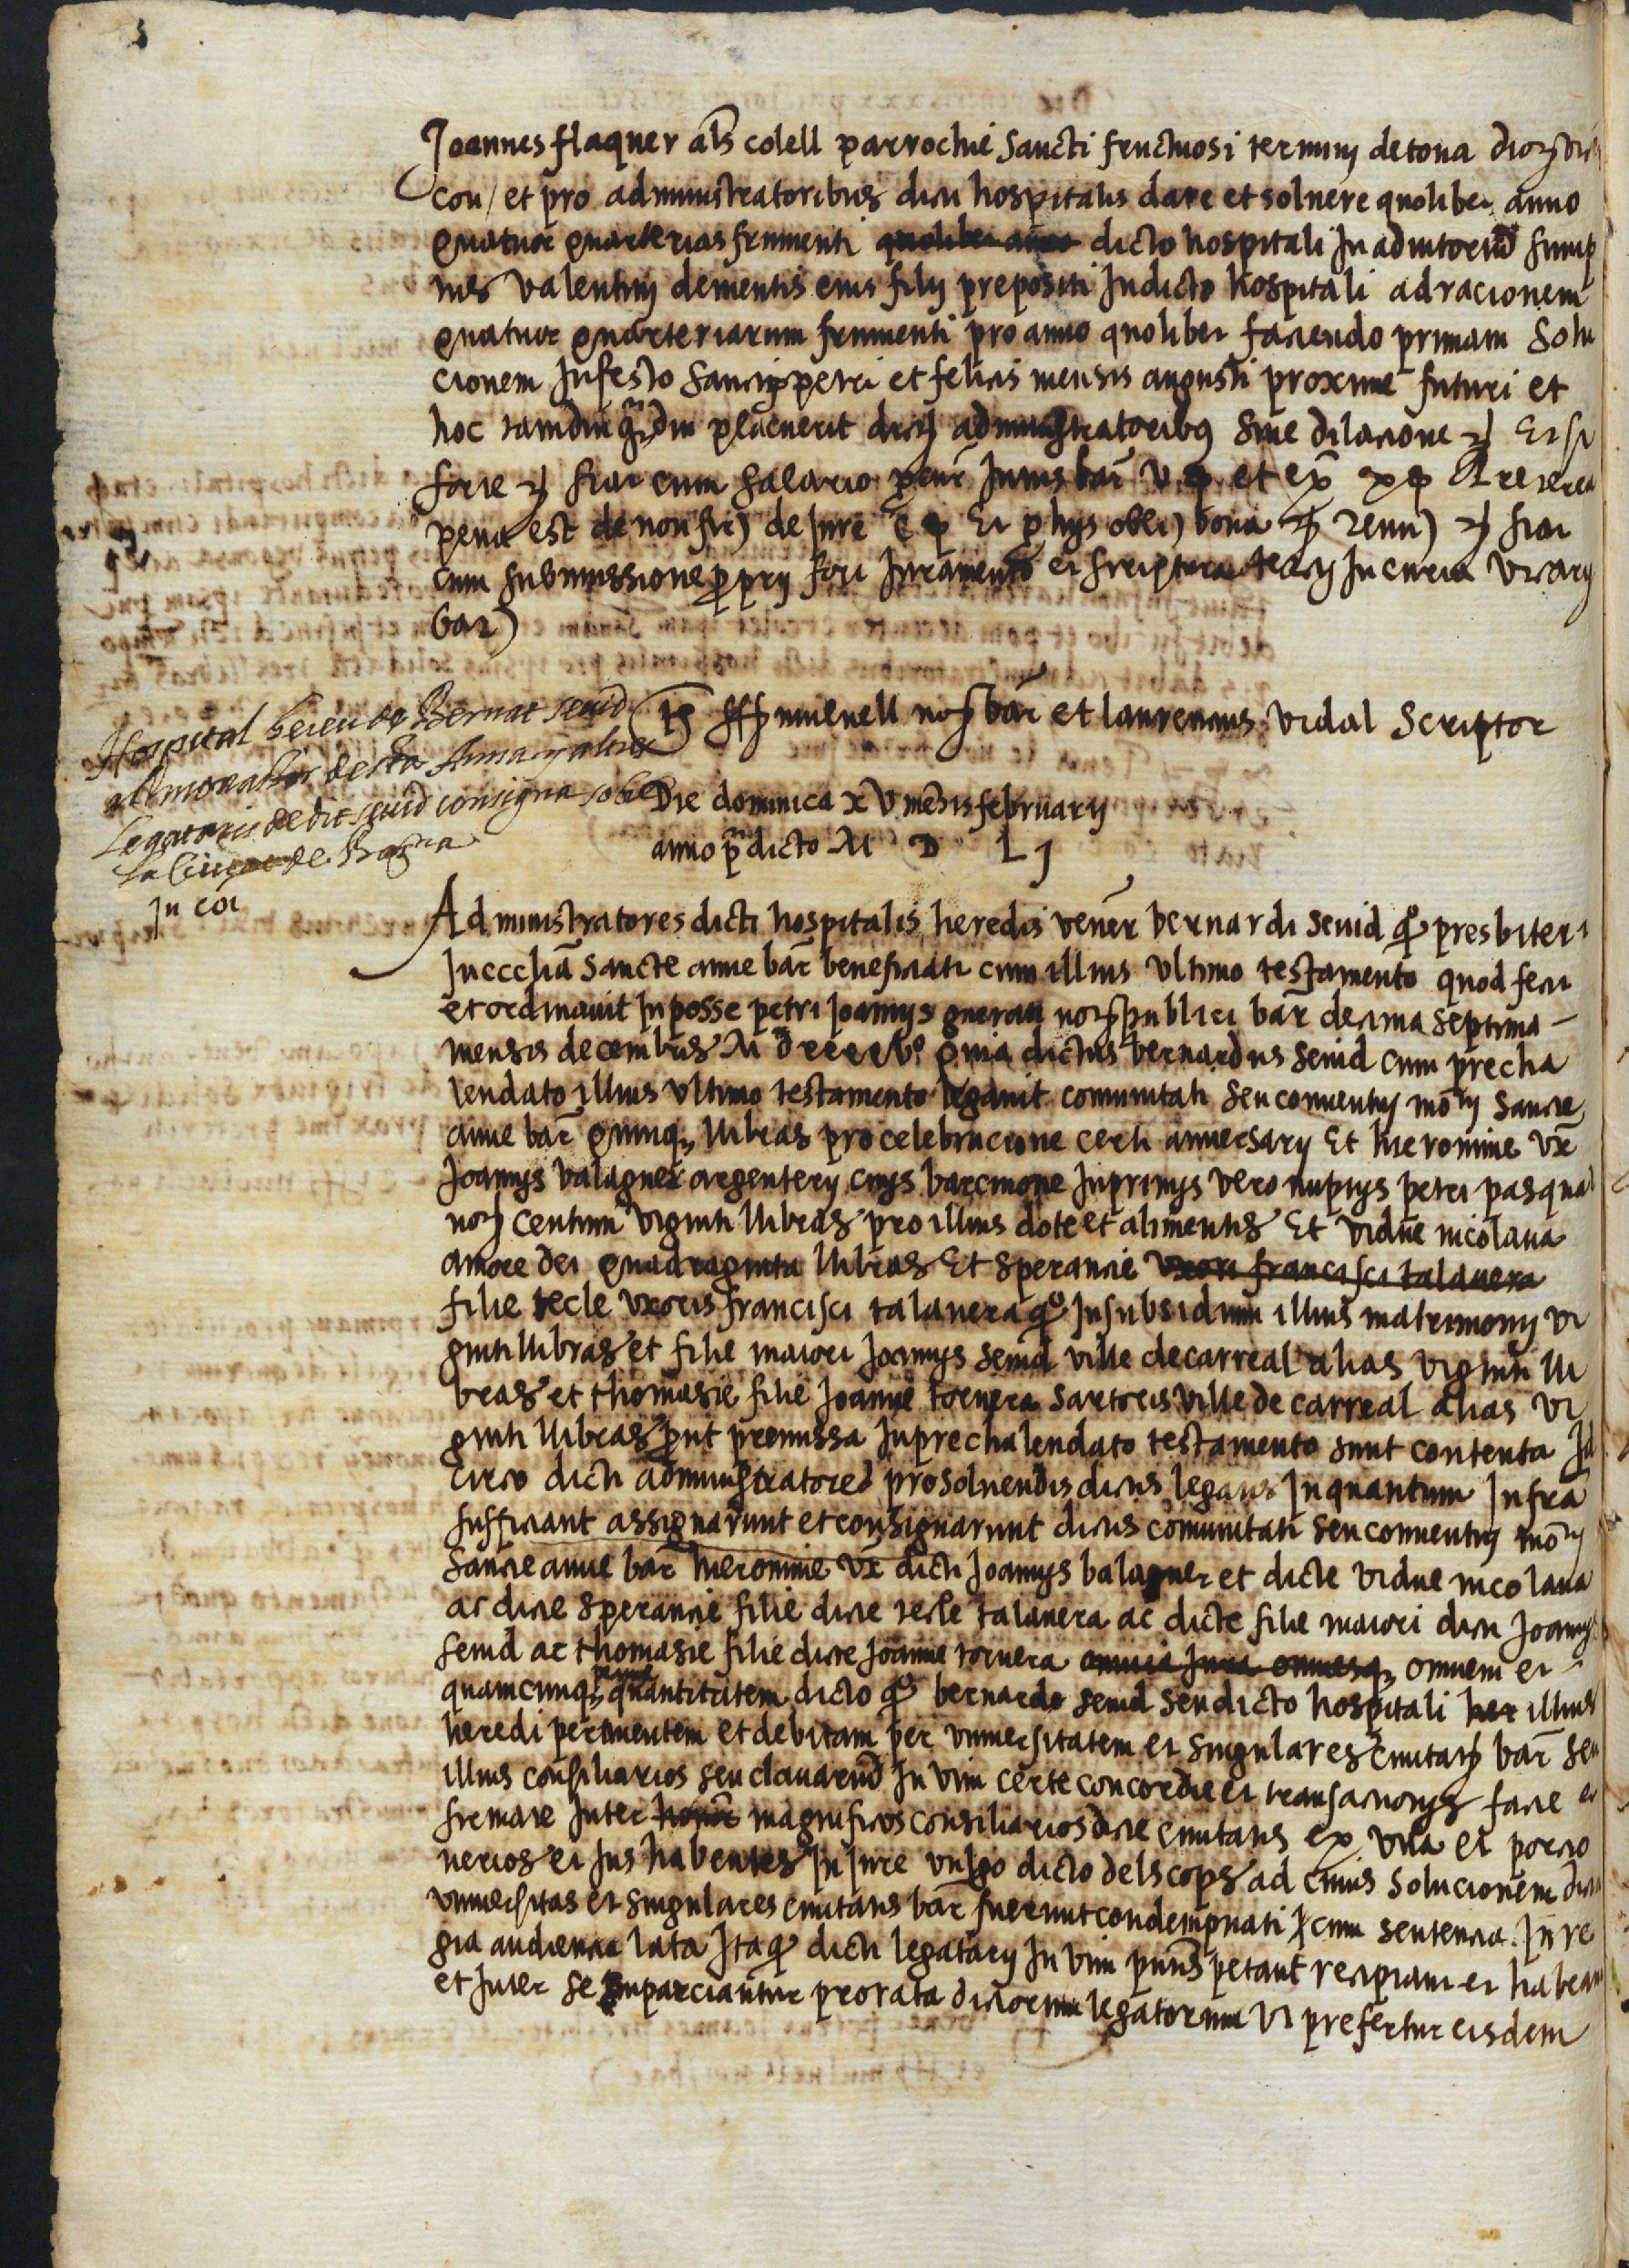 Joannes flaquer als colell parrochie Sancti fructuosi termini de tona
con / et pro administratoribus dicti hospitalis dare et solvere quolibet anno
quatuor quarterias frumenti quolibet anno dicto hospitali In adiutorium sump
nis Valentini dementis eius filij prepositi In dicto hospitali ad racionem
quatuor quarteriarum frumenti pro anno quolibet faciendo primam Solu
cionem In festo Sancti petri et felicis mensis augusti proxime futuri et
hoc tamdiu qndiu placuerit dictis administratoribus sine dilacione Et si
forte fiat cum salario intus bar v et ex x
pena est de non fir) de Jure Et obli) bona renu) fiat
cum submissione proprij fori Juramento et scriptura tercij In curia Vicarij
bar)
Hospital hereu de Bernat seuid
al monastir de sta Anna y altres
Legataris de dit seuid consigna sobre
la Ciutat de Barna
In coi
munell not bar et laurencius Vidal Scriptor
Die dominica xv mensis februarij
anno predicto M D L J
Administratores dicti hospitalis heredis Vener bernardi Seuid qo presbiteri
In ecclia Sancte anne bar beneficiati cum illius Ultimo testamento quod fecit
et ordinavit In posse petri Joannis not publici bar decima septima
mensis decembris M quia dictus bernardus Seuid cum precha
lendato illius Ultimo testamento legavit comunitati seu conventui mo rij Sancte
anne bar quinq libras pro celebracione certi anniversarij Et hieronime Vx
Joannis balaguer argenterij civis barcinone In primis vero nuptijs petri pasqual
not Centum Viginti libras pro illius dote et alimentis Et vidue nicolaua
amore dei quadraginta libras Et sperancie Uxori francisci talavera
filie tecle Uxoris francisci talavera qo In subsidium illius matrimonij Vi
ginti libras et filie maiori Joannis Seuid Ville de carreal alias Viginti li
bras et thomasie filie Joanne tornera Sartoris Ville de carreal alias Vi
ginti libras prout premissa In prechalendato testamento sunt contenta Id
circo dicti administratores pro solvendis dictis legatis In quantum Infra
sufficiant assignarunt et consignarunt dictis comunitati seu conventui mo rij
Sancte anne bar hieronime Vx dicti Joannis balaguer et dicte Vidue nicolaua
ac dicte Sperancie filie dicte tecle talavera ac dicte filie maiori dicti Joannis
Seuid ac thomasie filie dicte Joanne tornera omnia Jura omnesq omnem et
quamcunq quantitatem dicto qo bernardo Seuid seu dicto hospitali her illius
heredi pertinentem et debitam per Universitatem et singulares Civitatis bar seu
illius consiliarios seu clavarium In vim certe concordie et transactionis facte et
firmate Inter magnificos consiliarios dicte civitatis ex Una et porcio
nerios et Jus habentes In Jure Vulgo dicto dels cops ad cuius Solucionem dicta
Universitas et singulares civitatis bar fuerunt condempnati cum sentencia In re
gia audiencia lata Itaq dicti legatarij In vim pntis petant recipiant et habeant
et Inter se Imparciantur pro rata dictorum legatorum Vt prefertur eisdem